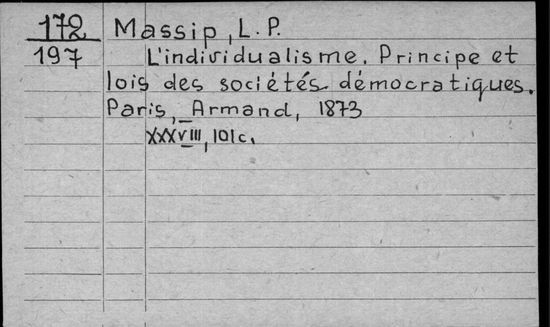 172 Massip, L. P.
197 L'individualisme. Principe et
lois des sociétés démocratiques.
Paris, Armand, 1873
XXXVIII, 101c.